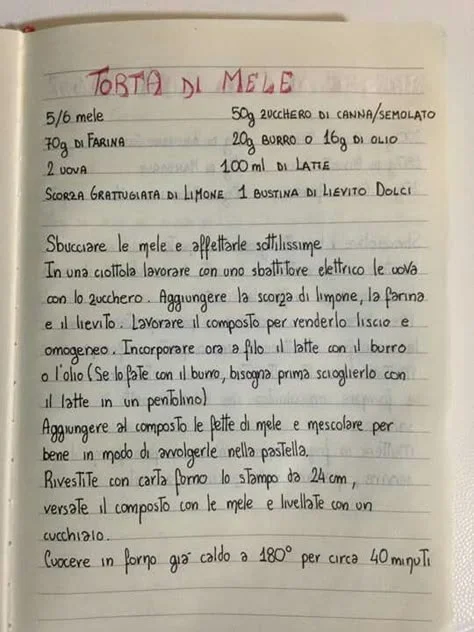 TORTA DI MELE
5/6 mele 50g ZUCCHERO DI CANNA/SEMOLATO
70g DI FARINA 20g BURRO O 16g DI OLIO
2 UOVA 100 ml DI LATTE
SCORZA GRATTUGIATA DI LIMONE 1 BUSTINA DI LIEVITO DOLCI
Sbucciare le mele e affettarle sottilissime
In una ciottola lavorare con uno sbattitore elettrico le uova
con lo zucchero. Aggiungere la scorza di limone, la farina
e il lievito. Lavorare il composto per renderlo liscio e
omogeneo. Incorporare ora a filo il latte con il burro
o l'olio (Se lo fate con il burro, bisogna prima scioglierlo con
il latte in un pentolino)
Aggiungere al composto le fette di mele e mescolare per
bene in modo di avvolgerle nella pastella.
Rivestite con carta forno lo stampo da 24 cm,
versate il composto con le mele e livellate con un
cucchiaio.
Cuocere in forno già caldo a 180° per circa 40 minuti